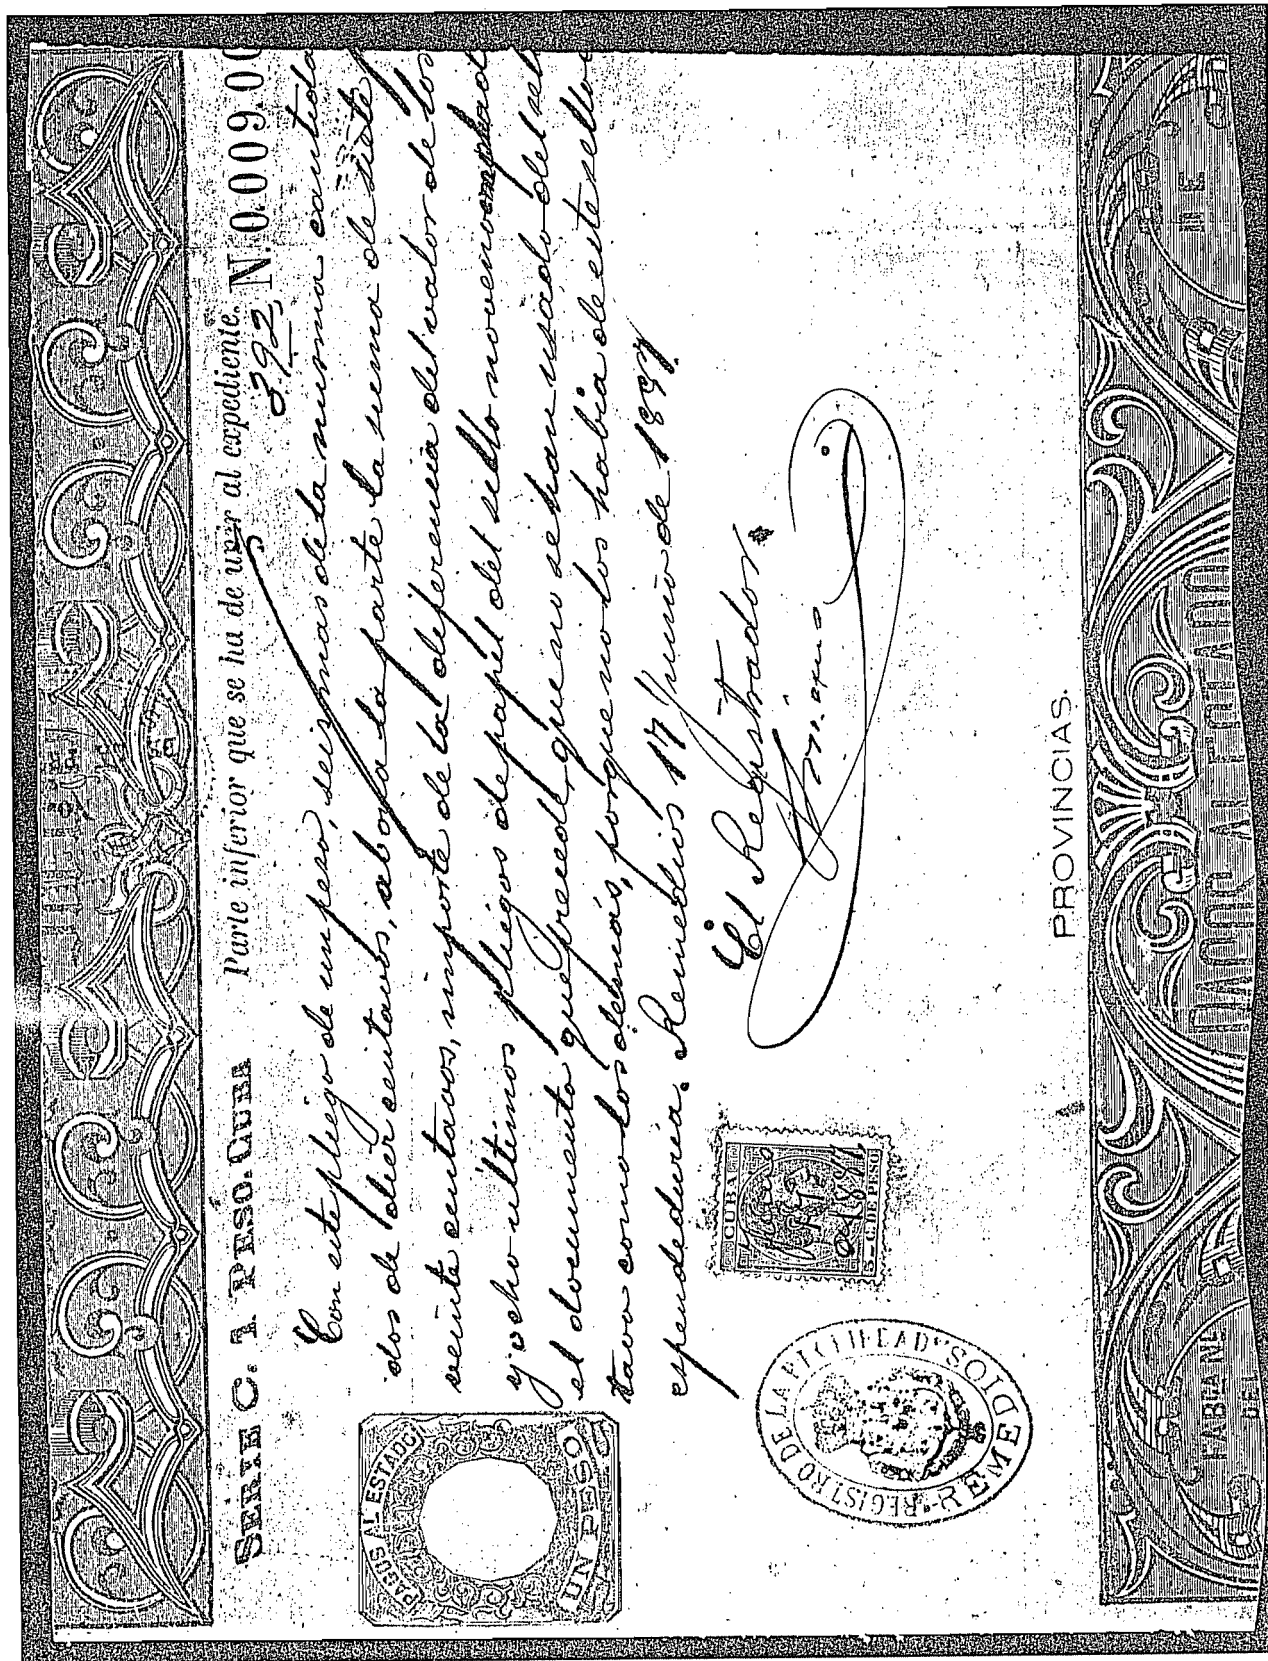 SERIE C. 1 PESO. CUBA Parte inferior que se ha de unir al expediente. N. 0.009.00
392
Con este pliego de un peso, seis mas de la misma cantida
dos de dier centavos, se abona la parte la suma de siete p
veinte centavos, importe de la diferencia del valor de los
y ocho ultimos pliegos de papel del sello noveno
el documento que precede, que no se han usado del sell
tavo como los demás, porque no los habia de este sello
espendeduria. Remedios 17 Junio de 1897.
El Registrador
PAGOS AL ESTADO
UN PESO
CUBA
5 C. DE PESO
REGISTRO DE LA PROPIEDAD
REMEDIOS
PROVINCIAS.
PAGOS AL ESTADO